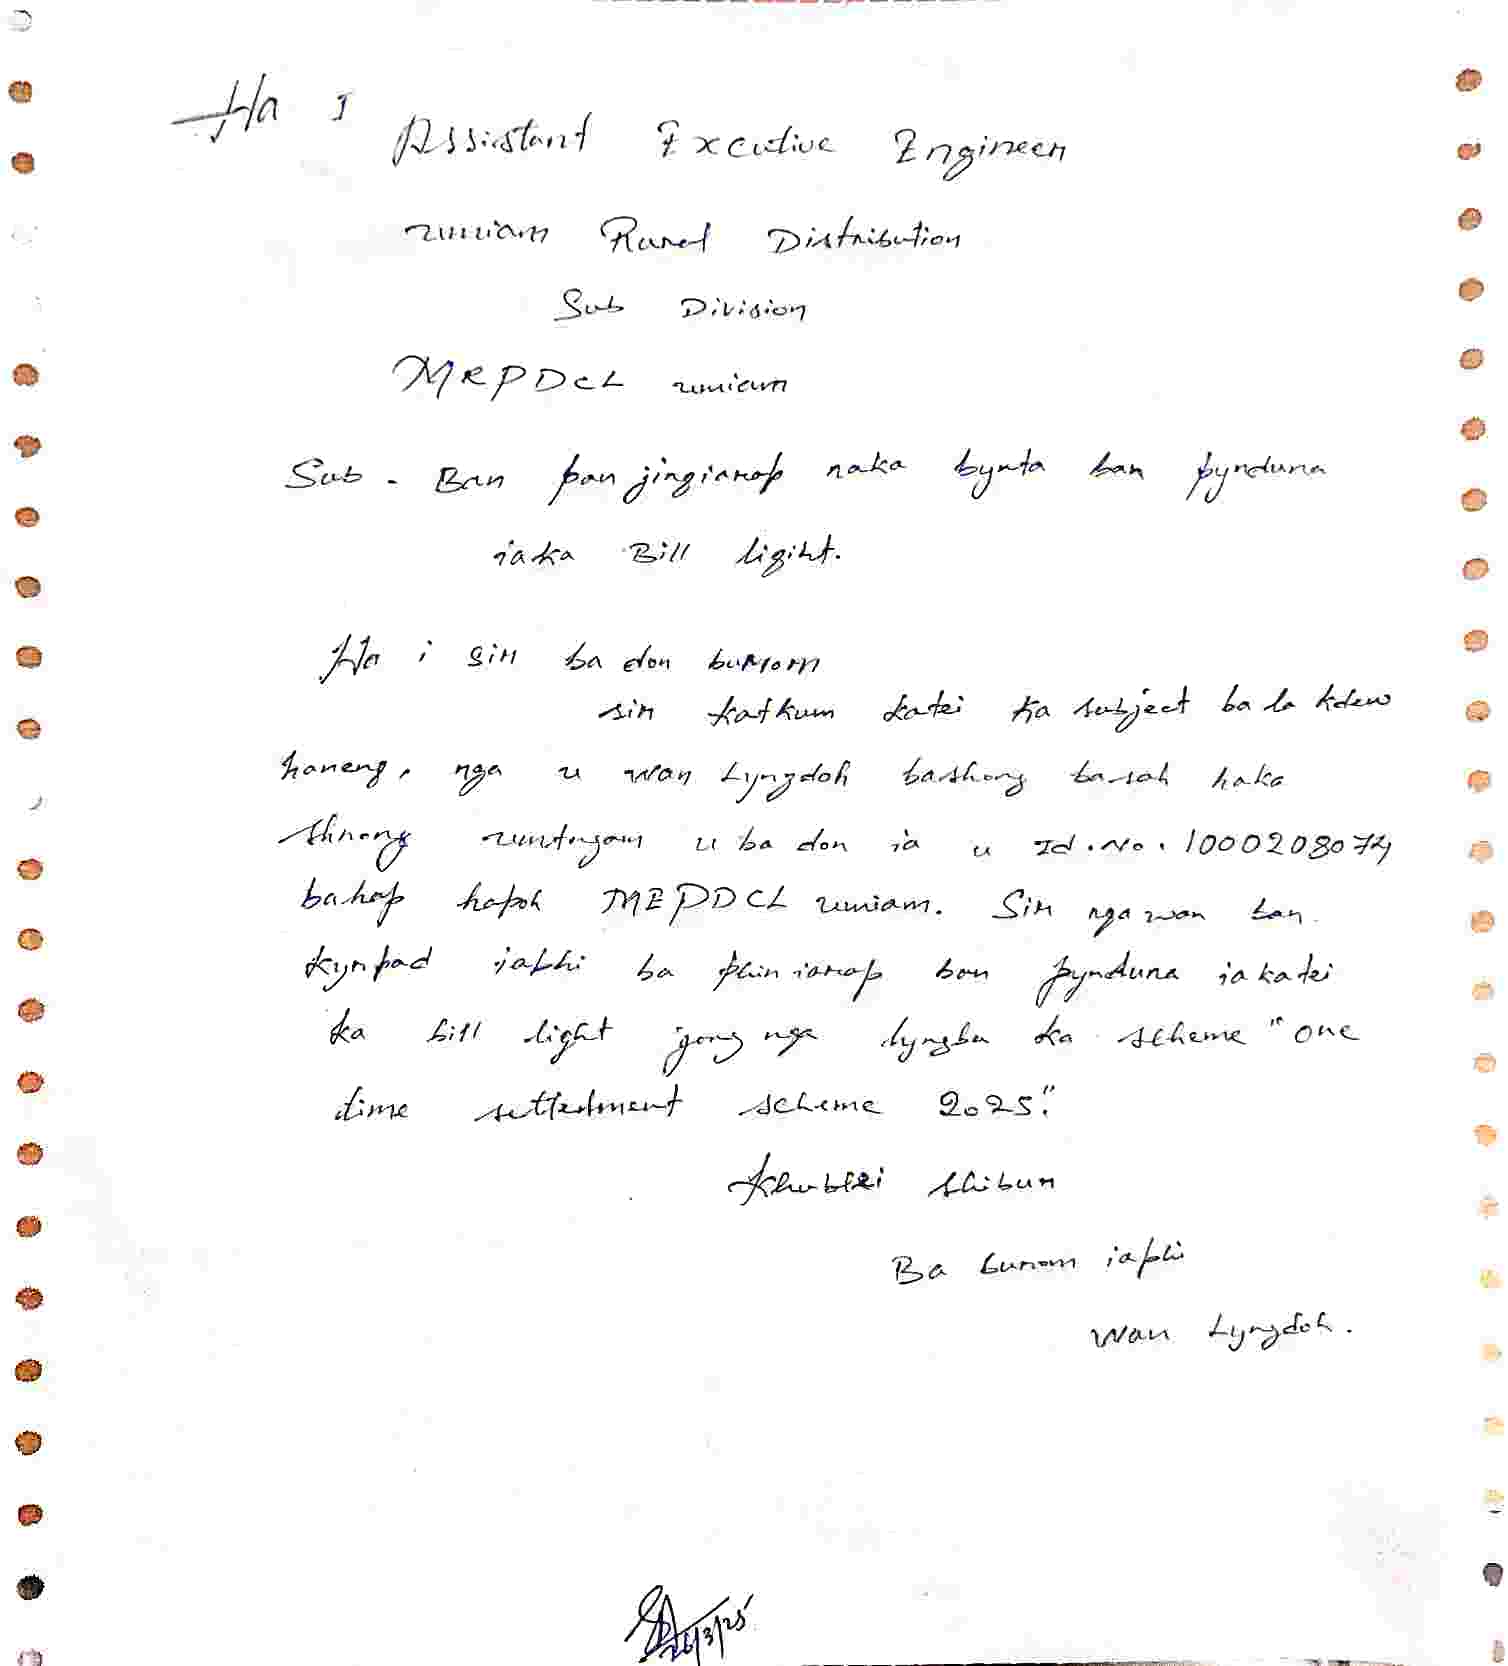 Ha I
Assistant Excutive Engineer
umiam Rural Distribution
Sub Division
MEPDCL umiam
Sub - Ban pan jingiarap naka bynta ban pynduna
iaka Bill light.
Ha i sir ba don burom
sir katkum katei ka subject ba la kdew
haneng, nga u wan Lyngdoh bashong basah haka
shnong umtngam u ba don ia u Id.No. 1000208074
bahap hapoh MEPDCL umiam. Sir nga wan ban
kyrpad iaphi ba phin iarap ban pynduna ia katei
ka bill light jong nga lyngba ka scheme "one
time settlement scheme 2025".
Khublei shibun
Ba burom iaphi
Wan Lyngdoh.
26/3/25